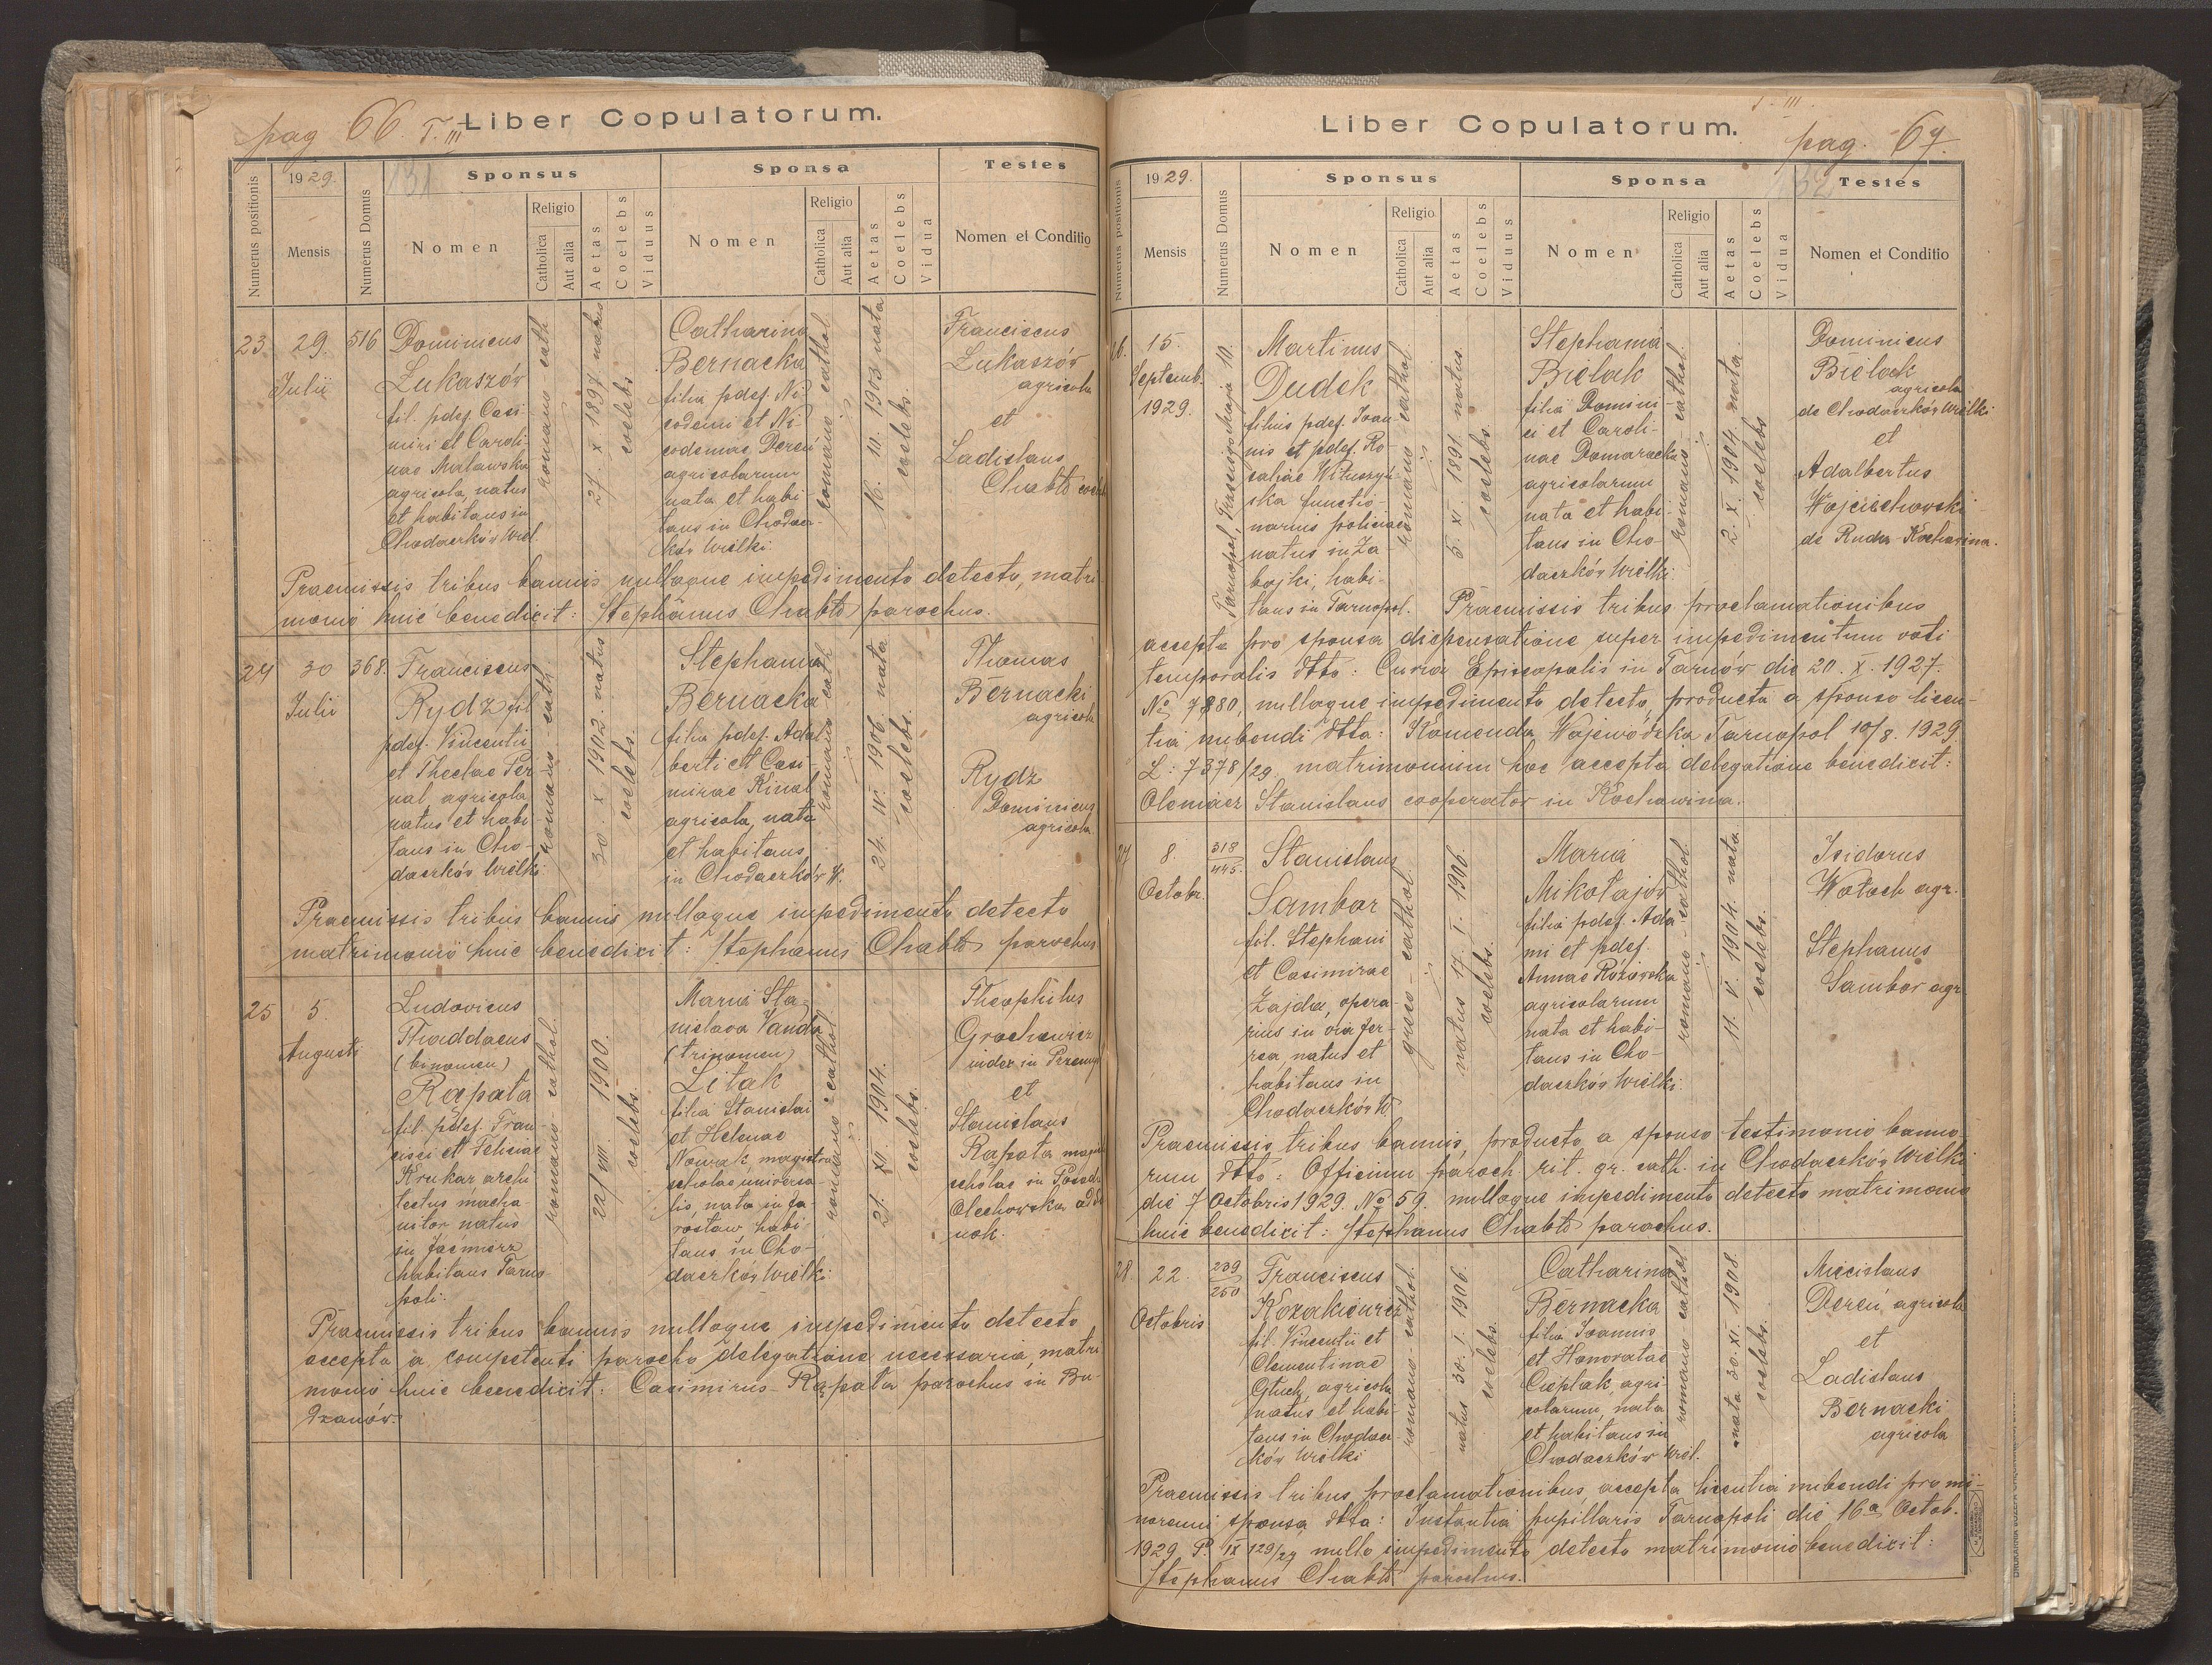 pag 66. T. III
Liber Copulatorum.
131
Numerus positionis
1929.
Mensis
Numerus Domus
Sponsus
Nomen
Religio
Catholica
Aut alia
Aetas
Coelebs
Viduus
Sponsa
Nomen
Religio
Catholica
Aut alia
Aetas
Coelebs
Vidua
Testes
Nomen et Conditio
23.
29.
Julii
516
Dominicus
Łukaszów
fil. pdef. Casi-
miri et Caroli-
nae Malawska
agricola, natus
et habitans in
Chodaczków Wiel.
romano-cath
27. X 1897 natus
coelebs
Catharina
Bernacka
filia pdef. Ni-
codemi et Ni-
codemae Dereń
agricolarum
nata et habi-
tans in Chodacz-
ków Wielki.
romano cathol.
16. III. 1903 nata
coelebs.
Franciscus
Łukaszów
agricola
et
Ladislaus
Chabło
Praemissis tribus bannis nulloque impedimento detecto, matri-
monio huic benedixit: Stephanus Chabło parochus.
24
30
Julii
368.
Franciscus
Rydz fil
pdef. Vincentii
et Theclae Per-
nal, agricola
natus et habi-
tans in Cho-
daczków Wielki.
romano-cath
30. X 1902. natus
coelebs.
Stephania
Bernacka
filia pdef. Adal-
berti et Casi-
mirae Kinal
agricola, nata
et habitans
in Chodaczków W.
romano cath
24. IV. 1906 nata
coelebs.
Thomas
Bernacki
agricola
Rydz
Dominicus
agricola.
Praemissis tribus bannis nulloque impedimento detecto
matrimonio huic benedixit: Stephanus Chabło parochus
25
5.
Augusti
Ludovicus
Thaddaeus
(binomen)
Rąpała
fil. pdef. Fran-
cisci et Feliciae
Krukar archi
tectus macha
nitor natus
in Jaćmierz
habitans Tarno-
poli.
romano-cathol.
22/VIII. 1900.
coelebs.
Maria Sta-
nislava Vanda
(trinomen)
Litak
filia Stanislai
et Helenae
Nowak, magistra
scholae universa-
lis, nata in Ja-
rosław, habi-
tans in Cho-
daczków Wielki
romano-cathol.
21. XII. 1904.
coelebs.
Theophilus
Grochowicz
iudex in Przemyśl
et
Stanislaus
Rąpała
scholae in Posada
Olechowska ad Sa
nok.
Praemissis tribus bannis nulloque impedimento detecto
accepta a competenti parocho delegatione necessaria, matri-
monio huic benedixit: Casimirus Rąpała parochus in Bu-
dzanów.
T. III.
Liber Copulatorum.
pag. 67.
132
Numerus positionis
1929.
Mensis
Numerus Domus
Sponsus
Nomen
Religio
Catholica
Aut alia
Aetas
Coelebs
Viduus
Sponsa
Nomen
Religio
Catholica
Aut alia
Aetas
Coelebs
Vidua
Testes
Nomen et Conditio
26.
15.
Septemb.
1929.
Martinus
Dudek
filius pdef. Joan-
nis et pdef. Ro-
saliae Wituszyń-
ska functio-
narius policiae
natus in Za-
bojki, habi-
tans in Tarnopol.
romano cathol.
5. XI. 1891 natus
coelebs.
Stephania
Bielak
filia Domini-
ci et Caroli-
nae Domaracka
agricolarum
nata et habi-
tans in Cho-
daczków Wielki.
romano-cathol.
2. X. 1904. nata.
coelebs
Dominicus
Bielak
agricola
de Chodaczków Wielki
et
Adalbertus
Wojciechowski
de Ruda-Kochawina.
Praemissis tribus proclamationibus
accepta pro sponsa dispensatione super impedimentum voti
temporalis dtto: Curia Episcopalis in Tarnów die 20. X. 1927.
No 7880, nulloque impedimento detecto, producta a sponso licen-
tia nubendi dtta: Komenda Wojewódzka Tarnopol 10/8. 1929.
L: 7378/29 matrimonium hoc accepta delegatione benedixit:
Stanislaus cooperator in Kochawina.
27
8.
Octobr.
318
445.
Stanislaus
Sambor
fil. Stephani
et Casimirae
Zajda, opera-
rius in via fer-
rea natus et
habitans in
Chodaczków W
greco-cathol.
natus 17. I. 1906.
coelebs.
Maria
Mikołajów
filia pdef. Ada
mi et pdef.
Annae Różowska
agricolarum
nata et habi-
tans in Cho-
daczków Wielki.
romano-cathol.
11. V. 1904. nata
coelebs.
Isidorus
Wołoch agr.
Stephanus
Sambor agr.
Praemissis tribus bannis, producto a sponso testimonio banno-
rum dtto: Officium paroch. rit. gr. cath. in Chodaczków Wielki
die 7 Octobris 1929. No 59. nulloque impedimento detecto matrimonio
huic benedixit: Stephanus Chabło parochus.
28.
22.
Octobris
239
250
Franciscus
Kozakiewicz
fil. Vincentii et
Clementinae
Głuch, agricola
natus et habi-
tans in Chodacz-
ków Wielki
romano-cathol.
natus 30. I. 1906.
coelebs.
Catharina
Bernacka
filia Joannis
et Honoratae
Cieplak, agri-
colarum, nata
et habitans in
Chodaczków Wiel.
romano cathol
nata 30. XI. 1908.
coelebs.
Miecislaus
Dereń, agricola
et
Ladislaus
Bernacki
agricola
Praemissis tribus proclamationibus accepta licentia nubendi pro mi-
norenni sponsa dtta: Instantia pupillaris Tarnopoli die 16a Octob.
1929. P. IX 129/29 nullo impedimento detecto matrimonio benedixit:
Stephanus Chabło parochus.